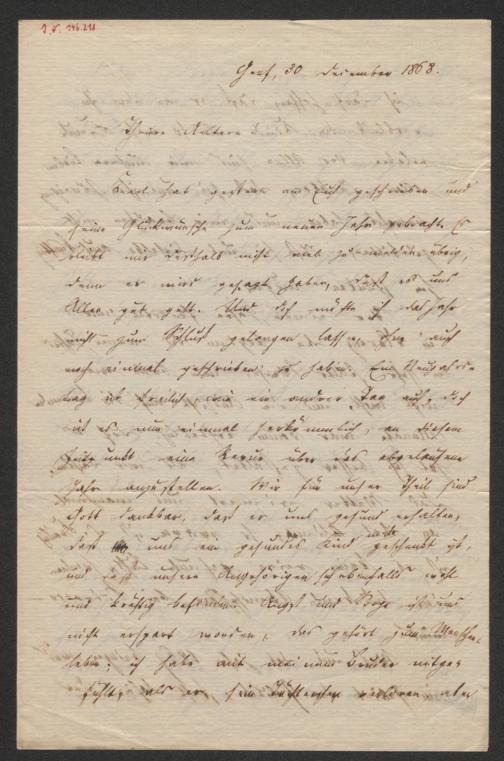 I. N. 146.218
Genf, 30 December 1868.
Theure Aeltern!
Karl hat gestern an Euch geschrieben und
seine Glückwünsche zum neuen Jahr gebracht. Es
bleibt mir deßhalb nicht viel zu melden übrig,
denn er wird gesagt haben, daß es uns
Allen gut geht. Und doch möchte ich das Jahr
nicht zum Schluß gelangen lassen, ohne auch
noch einmal geschrieben zu haben. Ein Neujahrs-
tag ist freilich, wie ein anderer Tag auch, doch
ist es nun einmal herkömmlich, an diesem
Zeitpunkt eine Revue über das abgelaufene
Jahr anzustellen. Wir für unser Theil sind
Gott dankbar, daß er uns gesund erhalten,
daß uns ein gesundes Kind geschenkt ist,
und daß unsere Angehörigen sich ebenfalls wohl
und kräftig befinden. Angst und Sorge ist uns
nicht erspart worden, das gehört zum Menschen-
leben; ich habe mit meinem Bruder mitge-
fühlt, als er sein Töchterchen verloren, aber